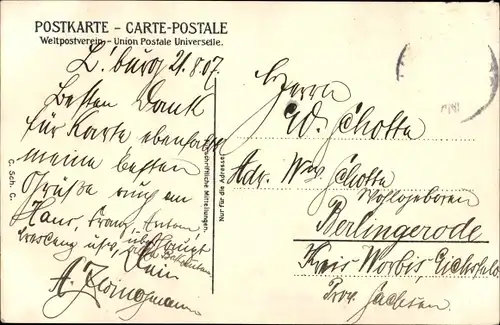 POSTKARTE – CARTE-POSTALE
Weltpostverein – Union Postale Universelle.
L'burg 21.8.07.
Besten Dank
für Karte ebenfalls
meine besten
Grüße auch an
Hans, Franz, Anton,
usw, überhaupt
Dein
A.
C. Sch. C.
Schriftliche Mitteilungen.
Nur für die Adresse.
Herrn
Ed. Schotte
Adr. Schotte
Wohlgeboren
Berlingerode
Kreis Worbis, Eichsfeld
Prov. Sachsen.